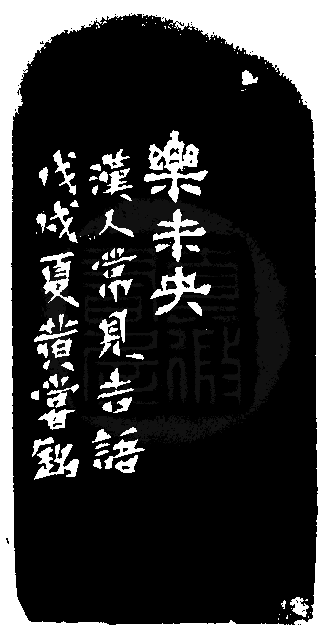 樂未央
漢人常見吉語
戊戌夏黄嘗銘